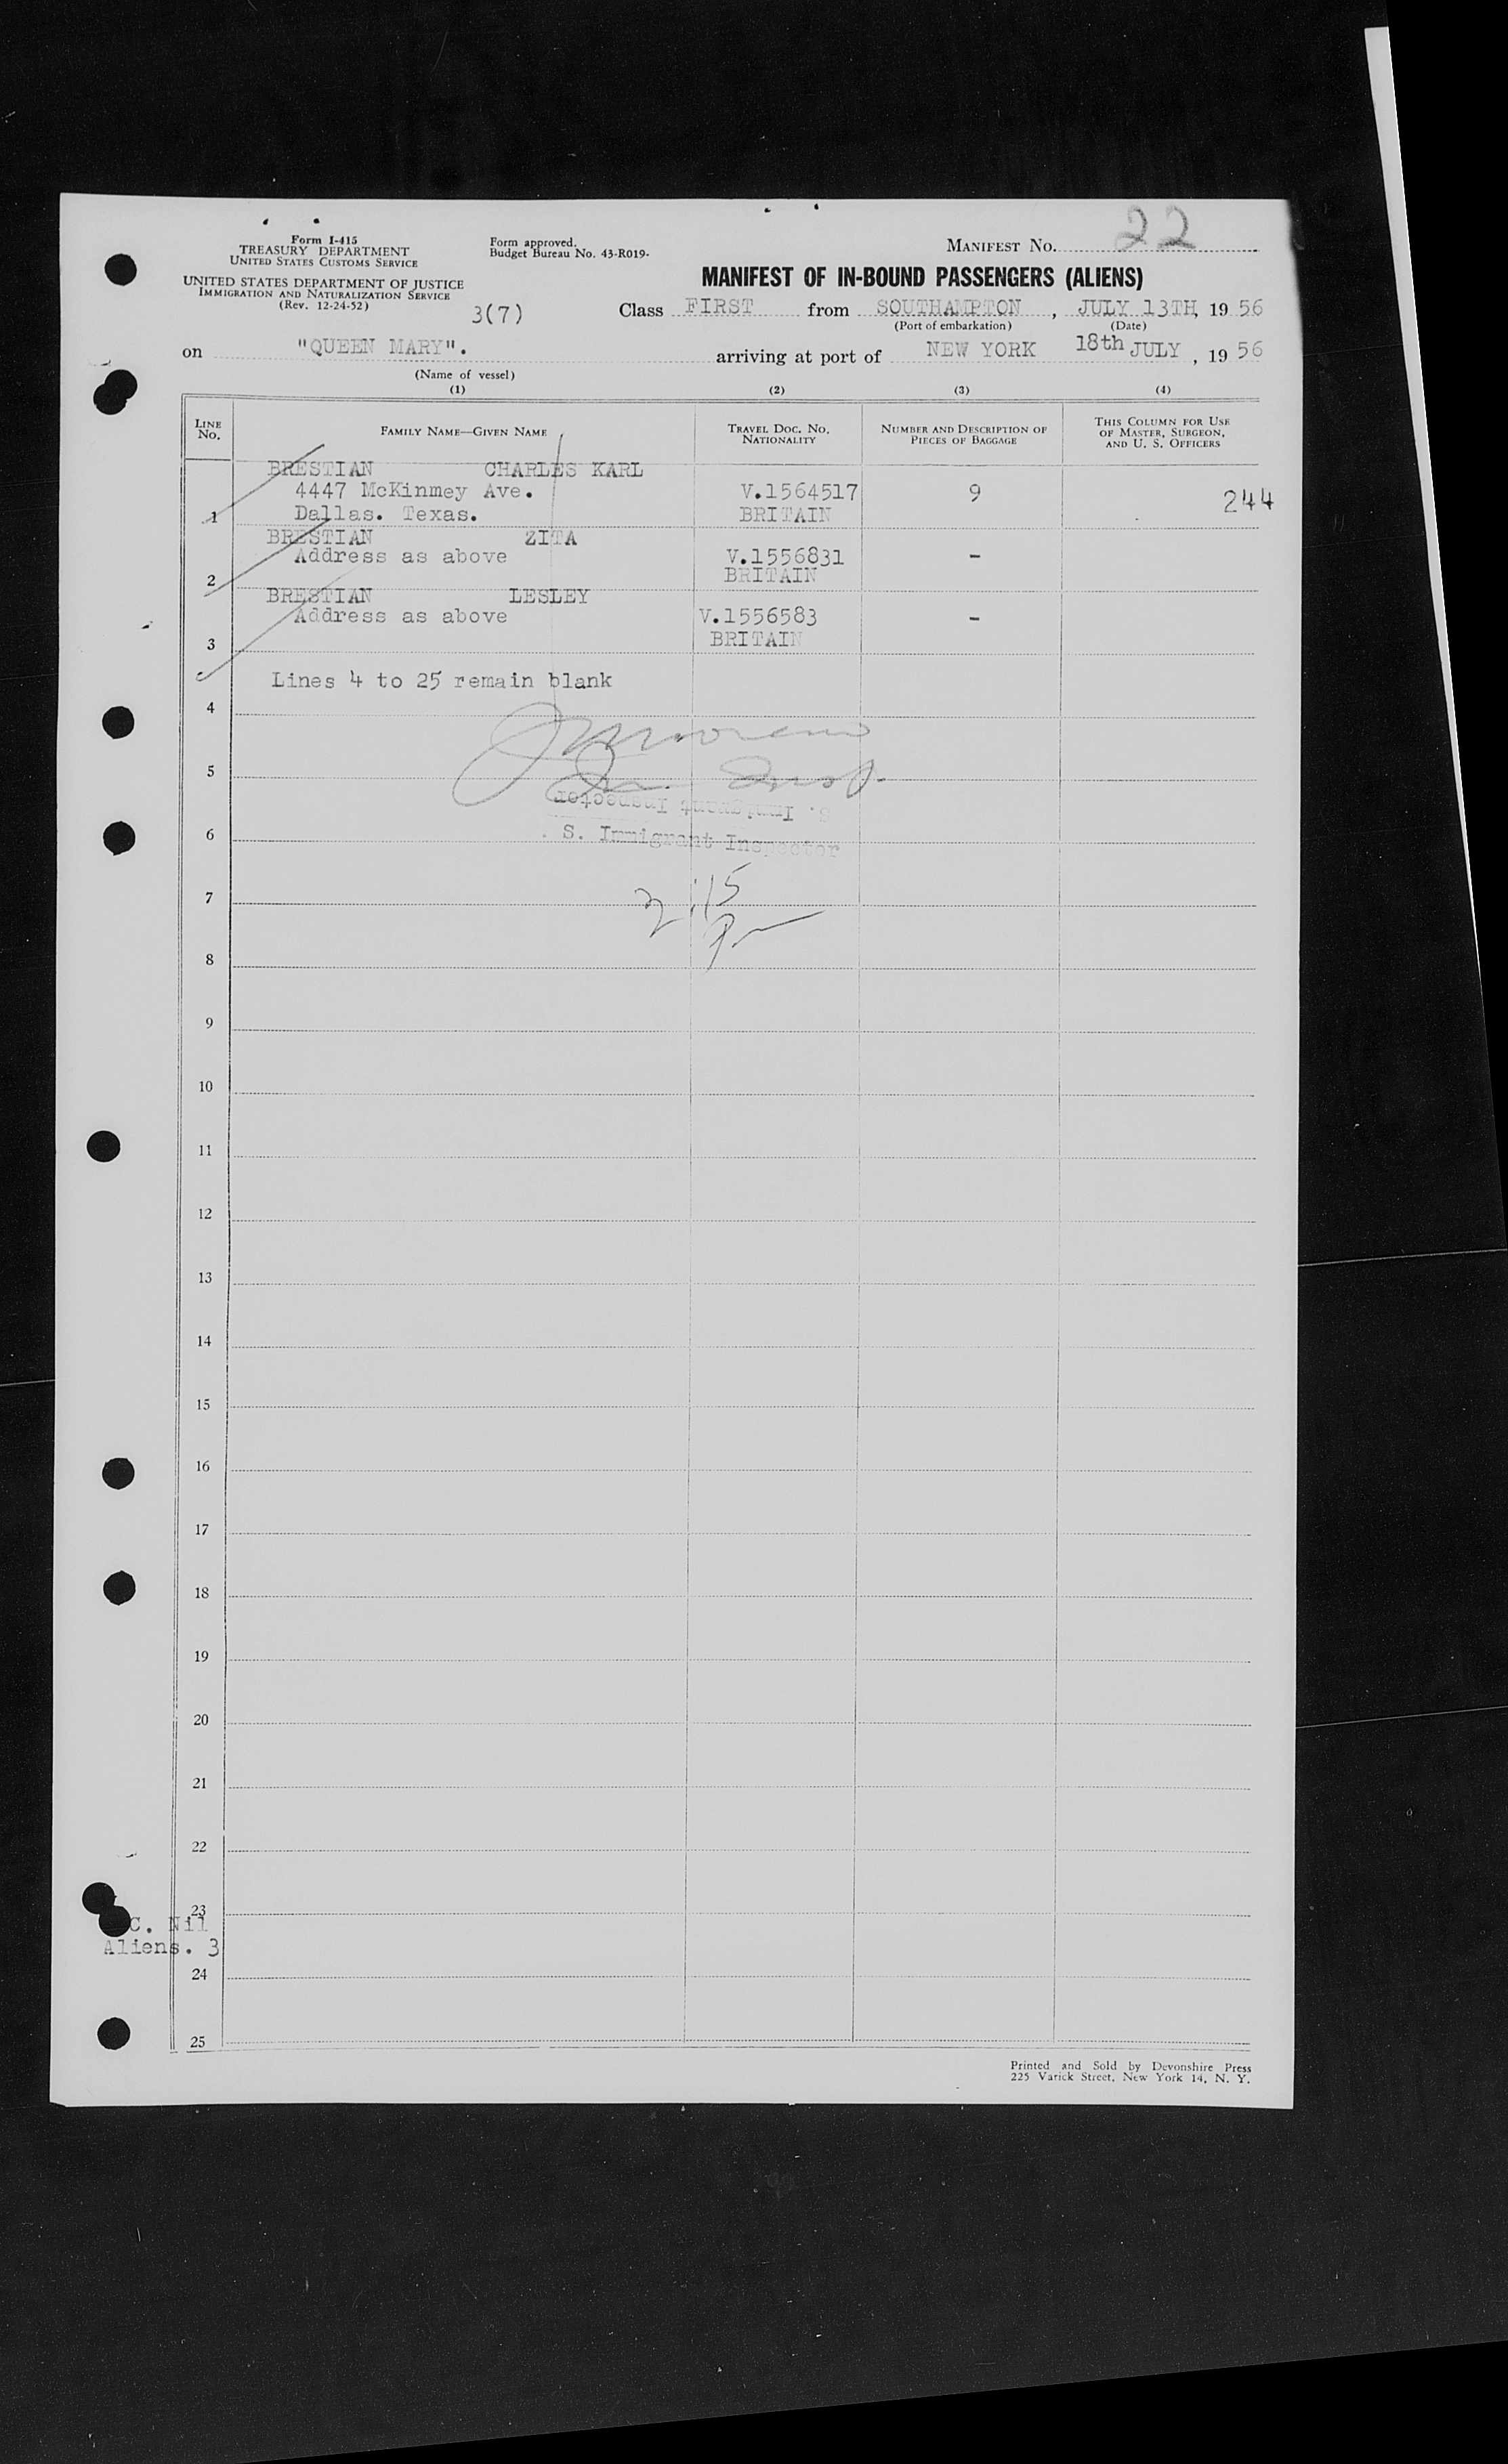 Form I-415
TREASURY DEPARTMENT
UNITED STATES CUSTOMS SERVICE
UNITED STATES DEPARTMENT OF JUSTICE
IMMIGRATION AND NATURALIZATION SERVICE
(Rev. 12-24-52)
3(7)
Form approved.
Budget Bureau No. 43-R019-
MANIFEST No. 22
MANIFEST OF IN-BOUND PASSENGERS (ALIENS)
Class FIRST from SOUTHAMPTON, JULY 13TH, 19 56
(Port of embarkation) (Date)
on "QUEEN MARY". arriving at port of NEW YORK 18th JULY, 19 56
(Name of vessel)
(1) (2) (3) (4)
LINE No. FAMILY NAME—GIVEN NAME TRAVEL DOC. NO. NATIONALITY NUMBER AND DESCRIPTION OF PIECES OF BAGGAGE THIS COLUMN FOR USE OF MASTER, SURGEON, AND U. S. OFFICERS
BRESTIAN CHARLES KARL
4447 McKinmey Ave. V.1564517 9 244
1 Dallas. Texas. BRITAIN
BRESTIAN ZITA
Address as above V.1556831 -
2 BRITAIN
BRESTIAN LESLEY
Address as above V.1556583 -
3 BRITAIN
Lines 4 to 25 remain blank
4
5
S. Immigrant Inspector
6 . S. Immigrant Inspector
7
8
9
10
11
12
13
14
15
16
17
18
19
20
21
22
23
C. Nil
Aliens. 3
24
25
Printed and Sold by Devonshire Press
225 Varick Street, New York 14, N. Y.